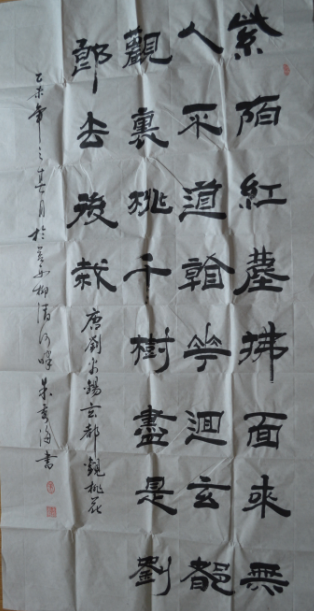 紫陌紅塵拂面来無
人不道看花迴玄都
觀裏桃千樹盡是劉
郎去後栽
唐劉禹錫玄都觀桃花
乙未年之春月於